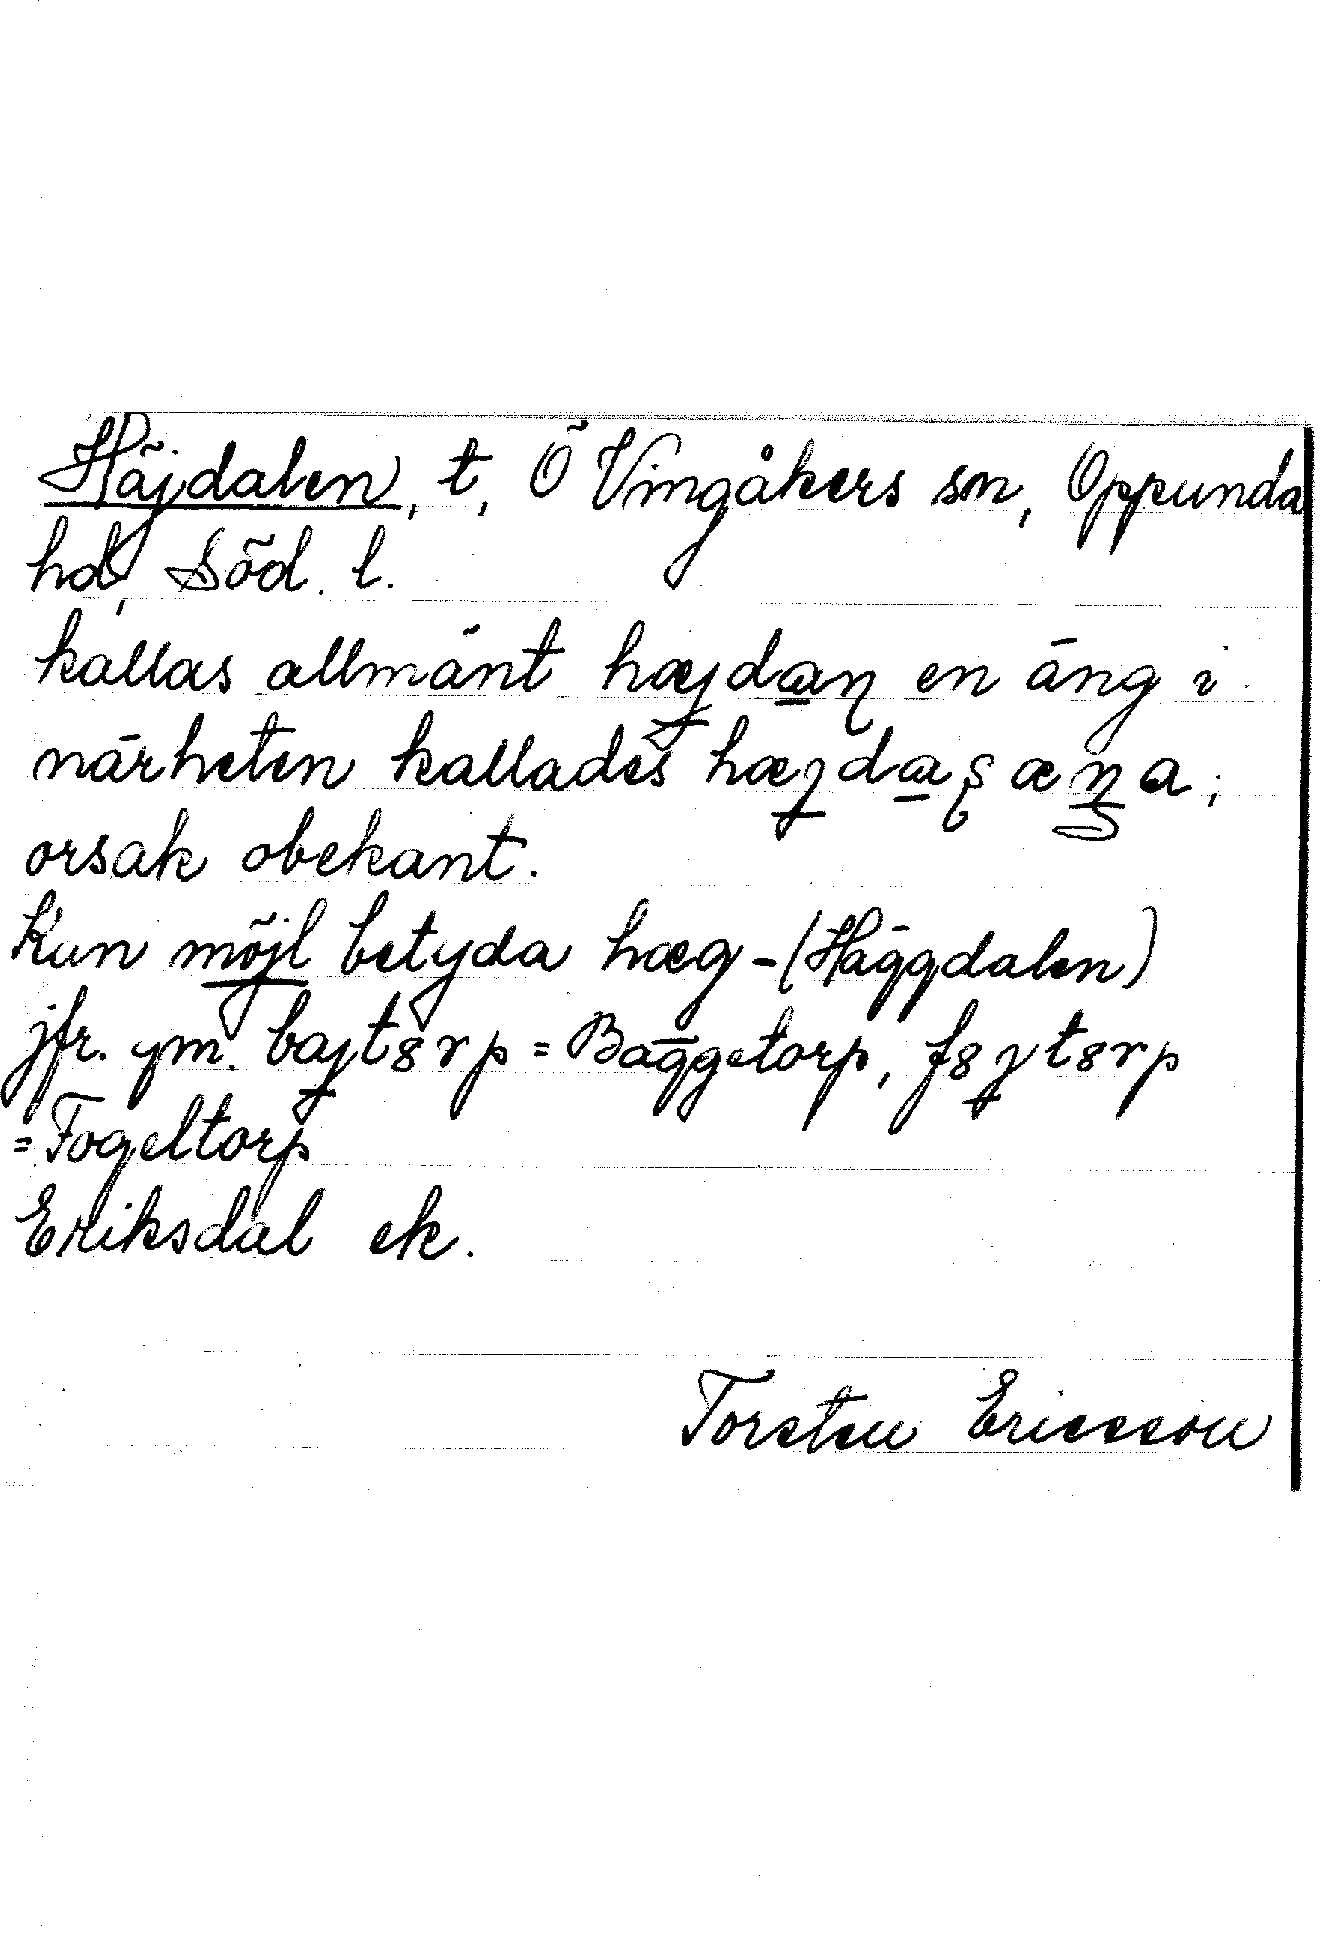 Häjdalen, t, Ö Vingåkers sn, Oppunda
hd, Söd. l.
kallas allmänt hæjdaɳ en äng i
närheten kallades
orsak obekant.
Kun möjl betyda hæg-(Häggdalen)
jfr. ym. bajt8rp = Baggetorp, f8jt8rp
=Fogeltorp
Eriksdal ek.
Torsten Ericsson